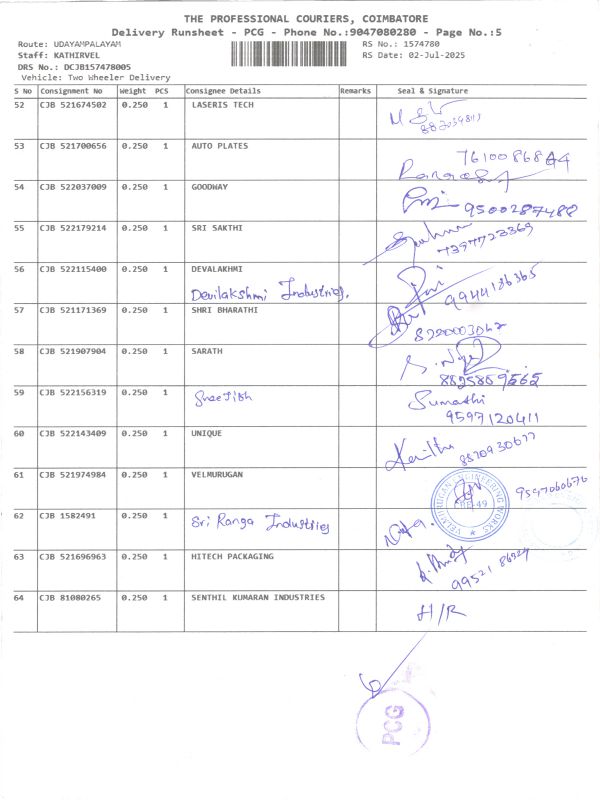 THE PROFESSIONAL COURIERS, COIMBATORE
Delivery Runsheet - PCG - Phone No.:9047080280 - Page No.:5
Route: UDAYAMPALAYAM
Staff: KATHIRVEL
DRS No.: DCJB157478005
Vehicle: Two Wheeler Delivery
RS No.: 1574780
RS Date: 02-Jul-2025
S No Consignment No Weight PCS Consignee Details Remarks Seal & Signature
52 CJB 521674502 0.250 1 LASERIS TECH
53 CJB 521700656 0.250 1 AUTO PLATES
54 CJB 522037009 0.250 1 GOODWAY 9500287488
55 CJB 522179214 0.250 1 SRI SAKTHI 7397723369
56 CJB 522115400 0.250 1 DEVALAKHMI
Devilakshmi Industries. 9944136365
57 CJB 521171369 0.250 1 SHRI BHARATHI 8220003062
58 CJB 521907904 0.250 1 SARATH
8825859565
59 CJB 522156319 0.250 1 Sumathi
9597120411
60 CJB 522143409 0.250 1 UNIQUE 8870930677
61 CJB 521974984 0.250 1 VELMURUGAN 9547060676
VELMURUGAN ENGINEERING WORKS
62 CJB 1582491 0.250 1 Sri Ranga Industries
63 CJB 521696963 0.250 1 HITECH PACKAGING
99521 86924
64 CJB 81080265 0.250 1 SENTHIL KUMARAN INDUSTRIES H/R
PCG